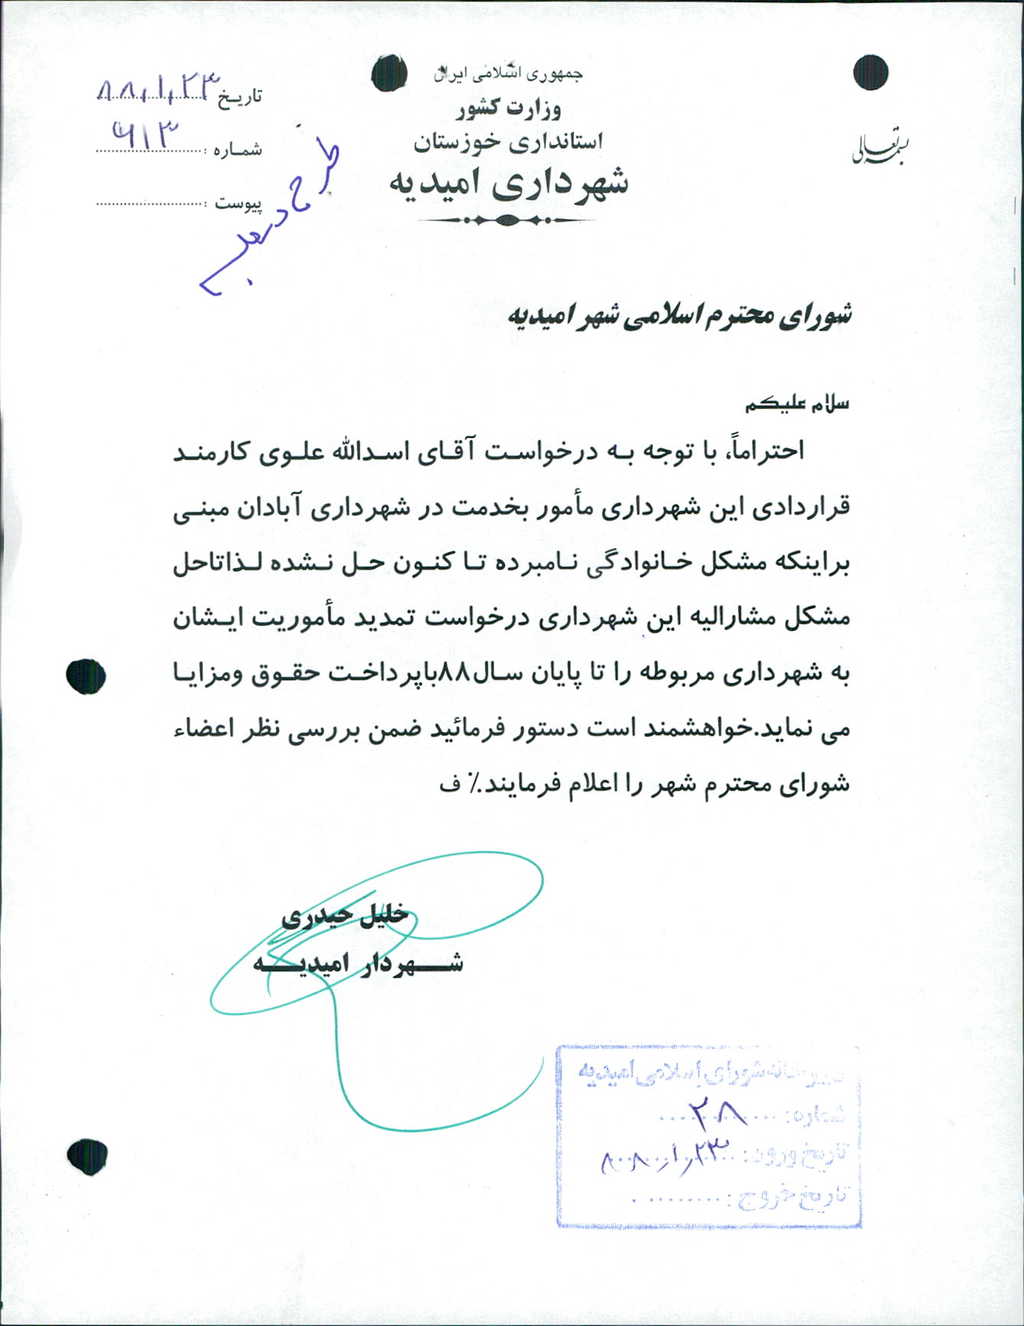 بسمه تعالی
جمهوری اسلامی ایران
وزارت کشور
استانداری خوزستان
شهرداری امیدیه
تاریخ ۸۸/۱/۲۳
شماره : ۶۱۳
پیوست :
طرح در جلسه
شورای محترم اسلامی شهر امیدیه
سلام علیکم
احتراماً، با توجه به درخواست آقای اسدالله علوی کارمند
قراردادی این شهرداری مأمور بخدمت در شهرداری آبادان مبنی
براینکه مشکل خانوادگی نامبرده تا کنون حل نشده لذاتاحل
مشکل مشارالیه این شهرداری درخواست تمدید مأموریت ایشان
به شهرداری مربوطه را تا پایان سال۸۸باپرداخت حقوق ومزایا
می نماید.خواهشمند است دستور فرمائید ضمن بررسی نظر اعضاء
شورای محترم شهر را اعلام فرمایند.٪ ف
خلیل حیدری
شهردار امیدیه
شورای اسلامی امیدیه
شماره: ۲۸
تاریخ ورود: ۸۸/۱/۲۳
تاریخ خروج :